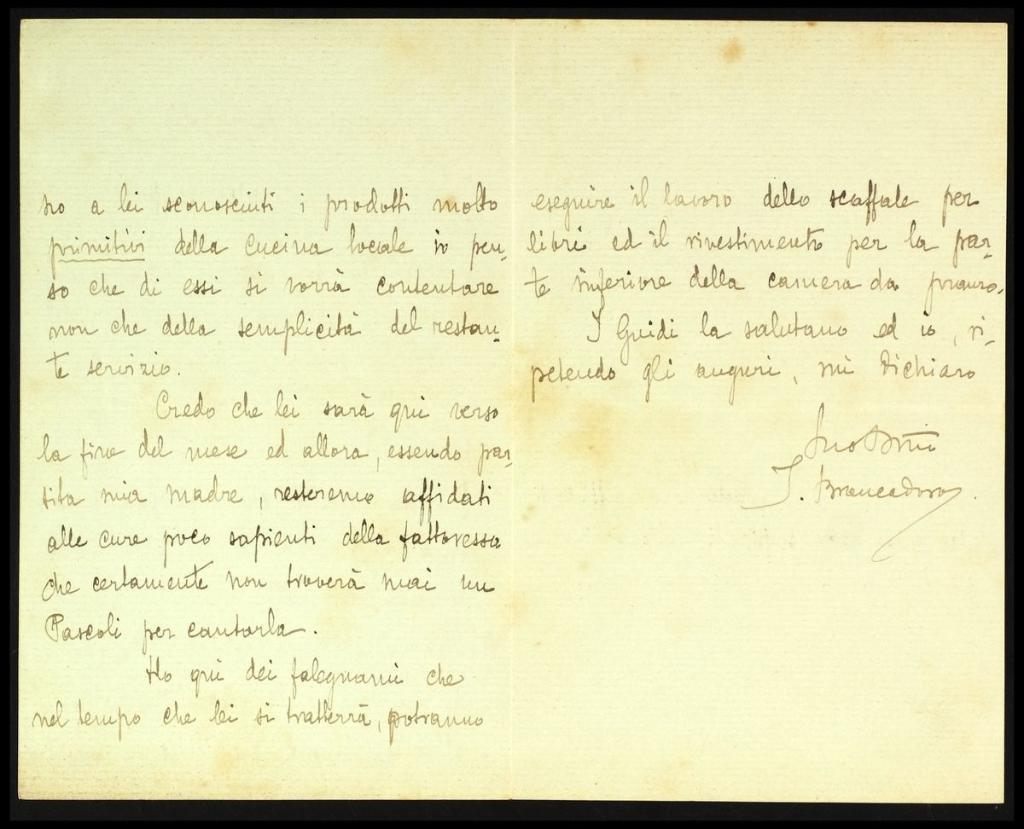 no a lei sconosciuti i prodotti molto
primitivi della cucina locale io pen-
so che di essi si vorrà contentare
non che della semplicità del restan-
te servizio.
Credo che lei sarà qui verso
la fine del mese ed allora, essendo par-
tita mia madre, resteremo affidati
alle cure poco sapienti della fattoressa
che certamente non troverà mai un
Pascoli per cantarla.
Ho qui dei falegnami che
nel tempo che lei si tratterrà, potranno
eseguire il lavoro dello scaffale per
libri ed il rivestimento per la par-
te inferiore della camera da pranzo.
I Guidi la salutano ed io, ri-
petendo gli auguri, mi dichiaro
Suo
J. Brancadoro.